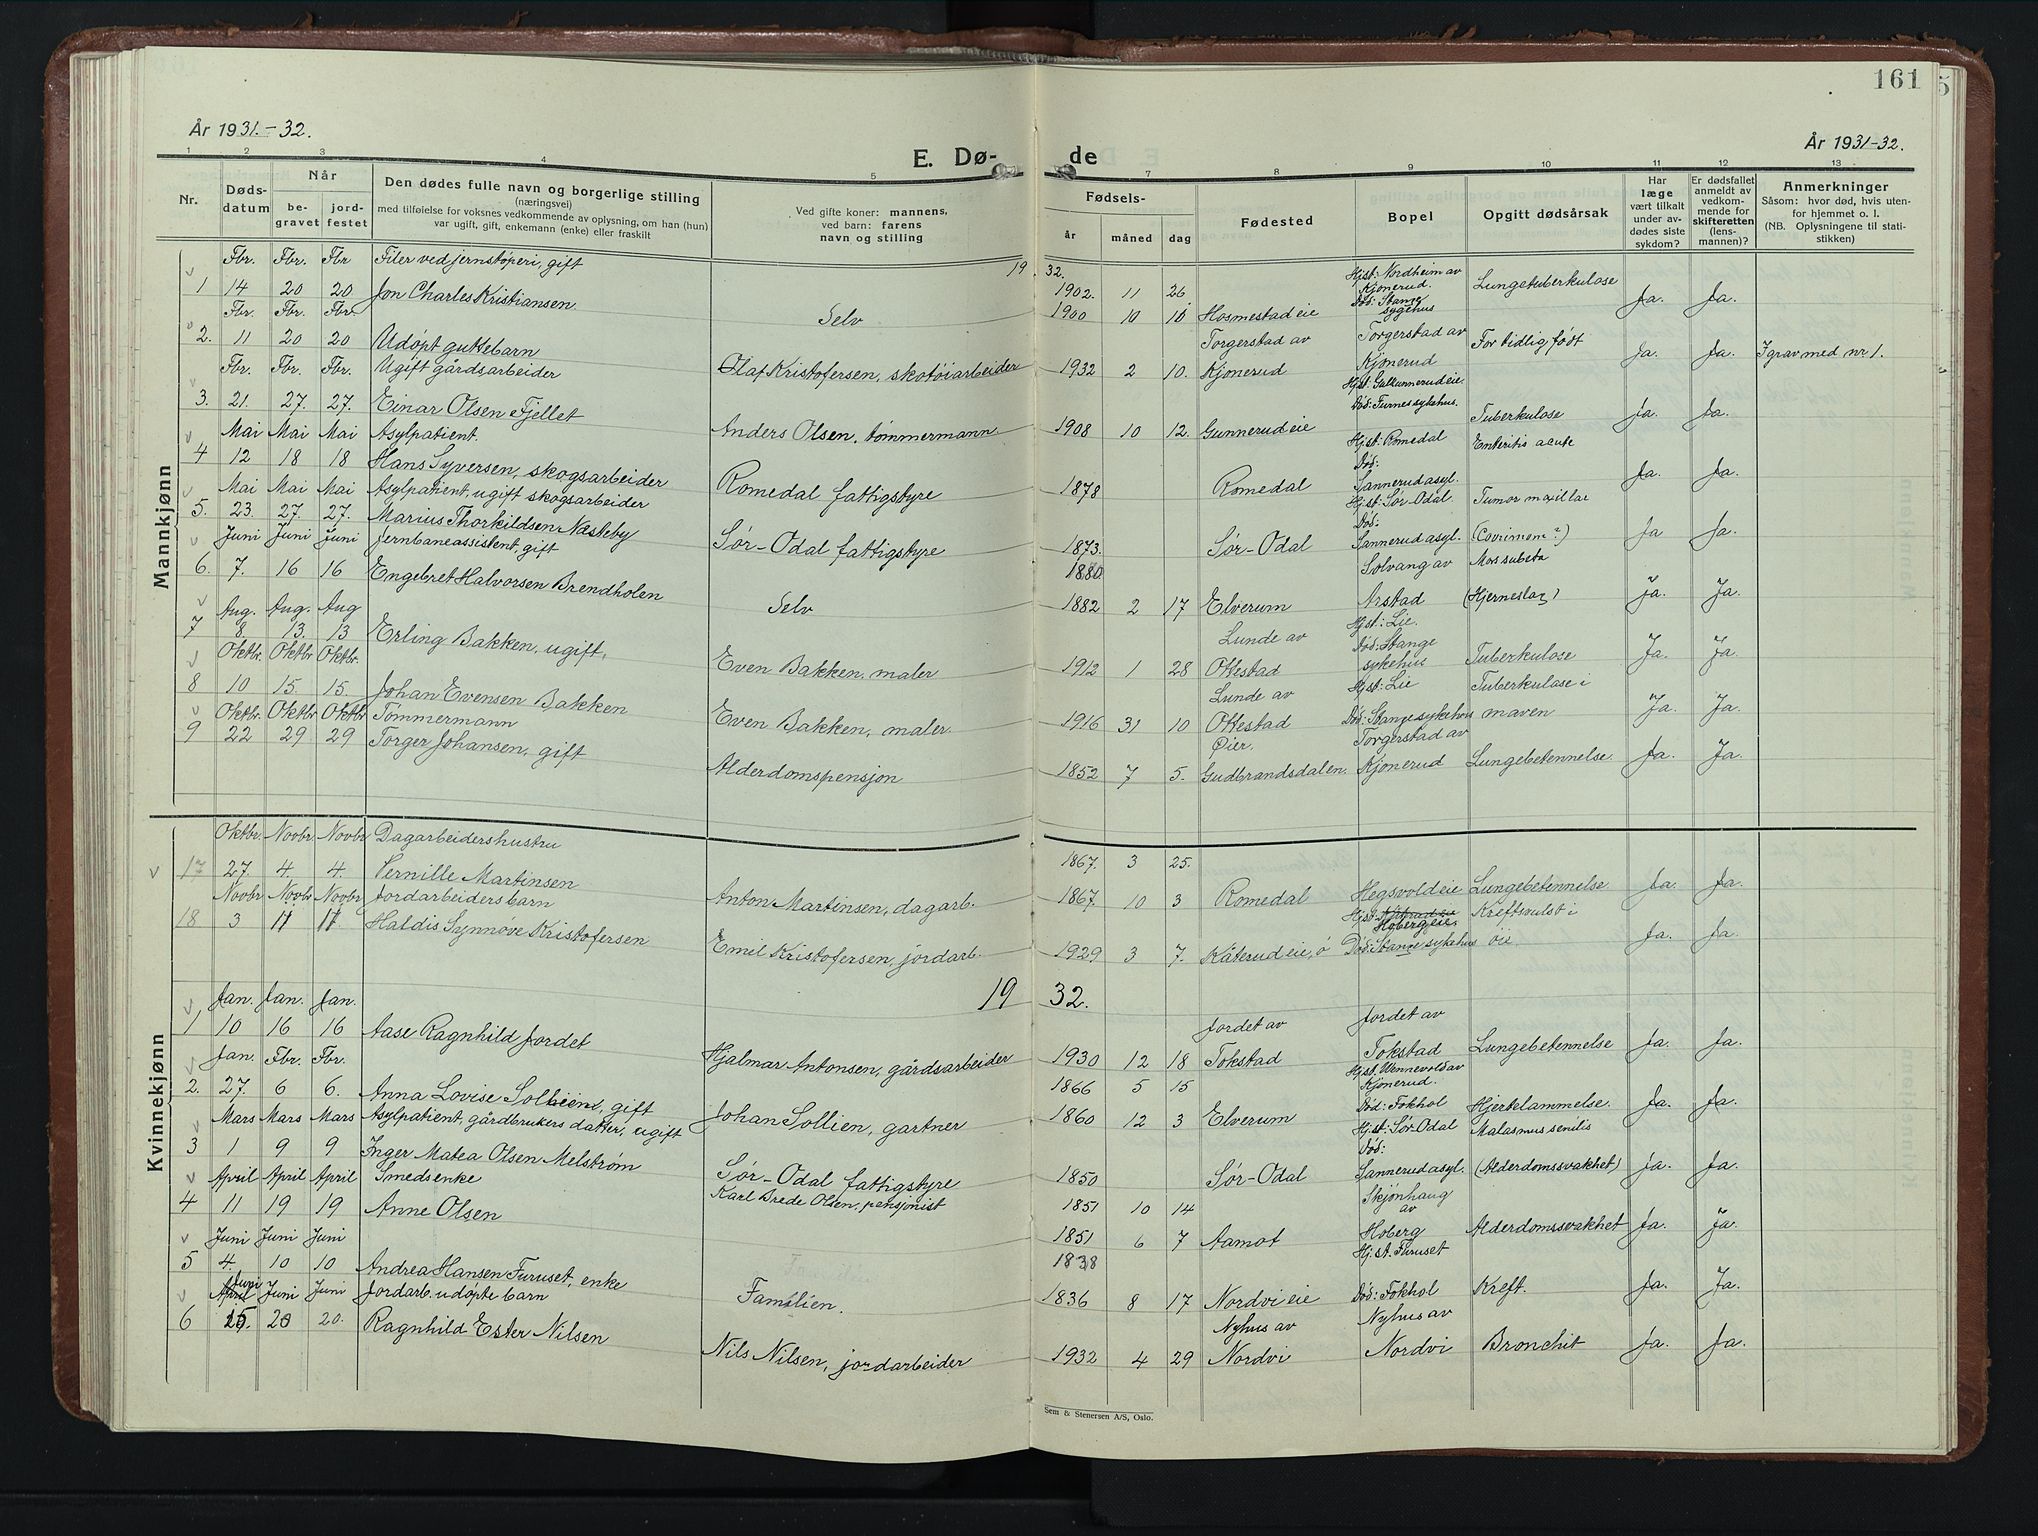 161
År 1931.-32.
År 1931-32.
E. Dø-
de
1 2 3 4 5 7 8 9 10 11 12 13
Nr.
Døds-
datum
Når
be-
gravet
jord-
festet
Den dødes fulle navn og borgerlige stilling
(næringsvei)
med tilføielse for voksnes vedkommende av oplysning, om han (hun)
var ugift, gift, enkemann (enke) eller fraskilt
Ved gifte koner: mannens,
ved barn: farens
navn og stilling
Fødsels-
år måned dag
Fødested
Bopel
Opgitt dødsårsak
Har
læge
vært tilkalt
under av-
dødes siste
sykdom?
Er dødsfallet
anmeldt av
vedkom-
mende for
skifteretten
(lens-
mannen)?
Anmerkninger
Såsom: hvor død, hvis uten-
for hjemmet o. l.
(NB. Oplysningene til stati-
stikken)
Mannkjønn
19 32.
Fbr. Fbr. Fbr Filer ved jernstøperi, gift Hjst: Nordheim av
1 14 20 20 Jon Charles Kristiansen. 1902. 11 26 Kjonerud. Lungetuberkulose
Død: Stange
Selv 1900 10 10 Hosmestad eie sygehus Ja. Ja.
Fbr. Fbr. Fbr. Torgerstad av Torgerstad av
2. 11 20 20 Udøpt guttebarn For tidlig født
Olaf Kristofersen, skotøiarbeider 1932 2 10. Kjonerud Kjonerud Ja. Ja. I grav med nr 1.
Fbr. Fbr. Fbr. Ugift gårdsarbeider Hjst:
3. 21. 27. 27. Einar Olsen Fjellet Død: Furnes sykehus.
Anders Olsen, tømmermann 1908 10 12. Gunnerud eie Tuberkulose Ja. Ja.
Mai Mai Mai Asylpatient. Hjst: Romedal Enteritis acute
4 12 18 18 Hans Syversen, skogsarbeider Død:
Romedal fattigstyre 1878 Romedal Sannerud asyl. Ja. Ja.
Mai Mai Mai Asylpatient, ugift skogsarbeider Hjst: Sør-Odal Tumor maxillae
5. 23. 27. 27. Marius Thorkildsen Næsteby Død:
Sør-Odal fattigstyre 1873. Sør-Odal Sannerud asyl. Ja Ja.
Juni Juni Juni Jernbaneassistent, gift 1880. Solvang av Mors subita
6. 7. 16 16 Engebret Halvorsen Brendholen
Selv 1882 2 17 Elverum Arstad (Hjerneslag) Ja. Ja.
Aug. Aug. Aug Hjst: Lie.
7 8 13. 13 Erling Bakken, ugift, Lunde av Død: Stange
Even Bakken, maler 1912 1 28 Ottestad sykehus Tuberkulose Ja. Ja.
Oktbr. Oktbr. Oktbr. Lunde av Hjst: Lie Tuberkulose i
8 10 15. 15. Johan Evensen Bakken
Even Bakken, maler. 1916 31 10 Ottestad Død: Stange sykehus maven Ja. Ja.
Oktbr. Oktbr Oktbr Tømmermann Øier. Torgerstad av
9 22 29 29 Torger Johansen, gift
Alderdomspensjon 1852 7 5. Gudbrandsdalen. Kjonerud Lungebetennelse. Ja. Ja.
Kvinnekjønn
Oktbr. Novbr. Novbr Dagarbeidershustru
17 27. 4. 4. Pernille Martinsen 1867. 3 25.
Anton Martinsen, dagarb. 1867 10 3 Romedal Hegsvold eie Lungebetennelse Ja. Ja.
Novbr Novbr Novbr Jordarbeidersbarn Hjst: Hoberg eie. Kreftsvulst i
18 3 11 11. Haldis Synnøve Kristofersen
Emil Kristofersen, jordarb. 1929 3 7. Kåterud eie, ø Død: Stange sykehus øie Ja. Ja.
19 32.
Jan. Jan. Jan.
1 10 16 16 Aase Ragnhild Jordet Jordet av Jordet av
Hjalmar Antonsen, gårdsarbeider 1930 12 18 Tokstad Tokstad Lungebetennelse Ja. Ja.
Jan. Fbr. Fbr. Hjst. Wennevold av
2. 27. 6 6. Anna Lovise Sollien, gift 1866 5 15 Kjonerud.
Johan Sollien, gartner 1860 12 3 Elverum Død: Fokhol Hjertelammelse. Ja. Ja.
Mars Mars Mars Asylpatient, gårdbrukers datter, ugift Hjst: Sør-Odal Malasmus senilis
3 1 9 9 Inger Matea Olsen Melstrøm Død:
Sør-Odal fattigstyre 1850 Sør-Odal Sannerud asyl. (Alderdomssvakhet) Ja. Ja.
April April April Smedsenke Karl Brede Olsen, pensjonist Skjønhaug
4 11 19 19 Anne Olsen 1851 10 14 av
1851 6 7 Aamot Hoberg Alderdomssvakhet Ja. Ja.
Juni Juni Juni Hjst. Furuset
5 4. 10 10 Andrea Hansen Furuset, enke 1838
Familien. 1836 8 17 Nordvi eie Død: Fokhol Kreft. Ja. Ja.
April Juni Juni Juni Jordarb. udøpte barn Nyhus av Nyhus av
6 15. 20 20. Ragnhild Ester Nilsen
Nils Nilsen, jordarbeider 1932 4 29 Nordvi Nordvi Bronchit Ja. Ja.
Sem & Stenersen A/S, Oslo.